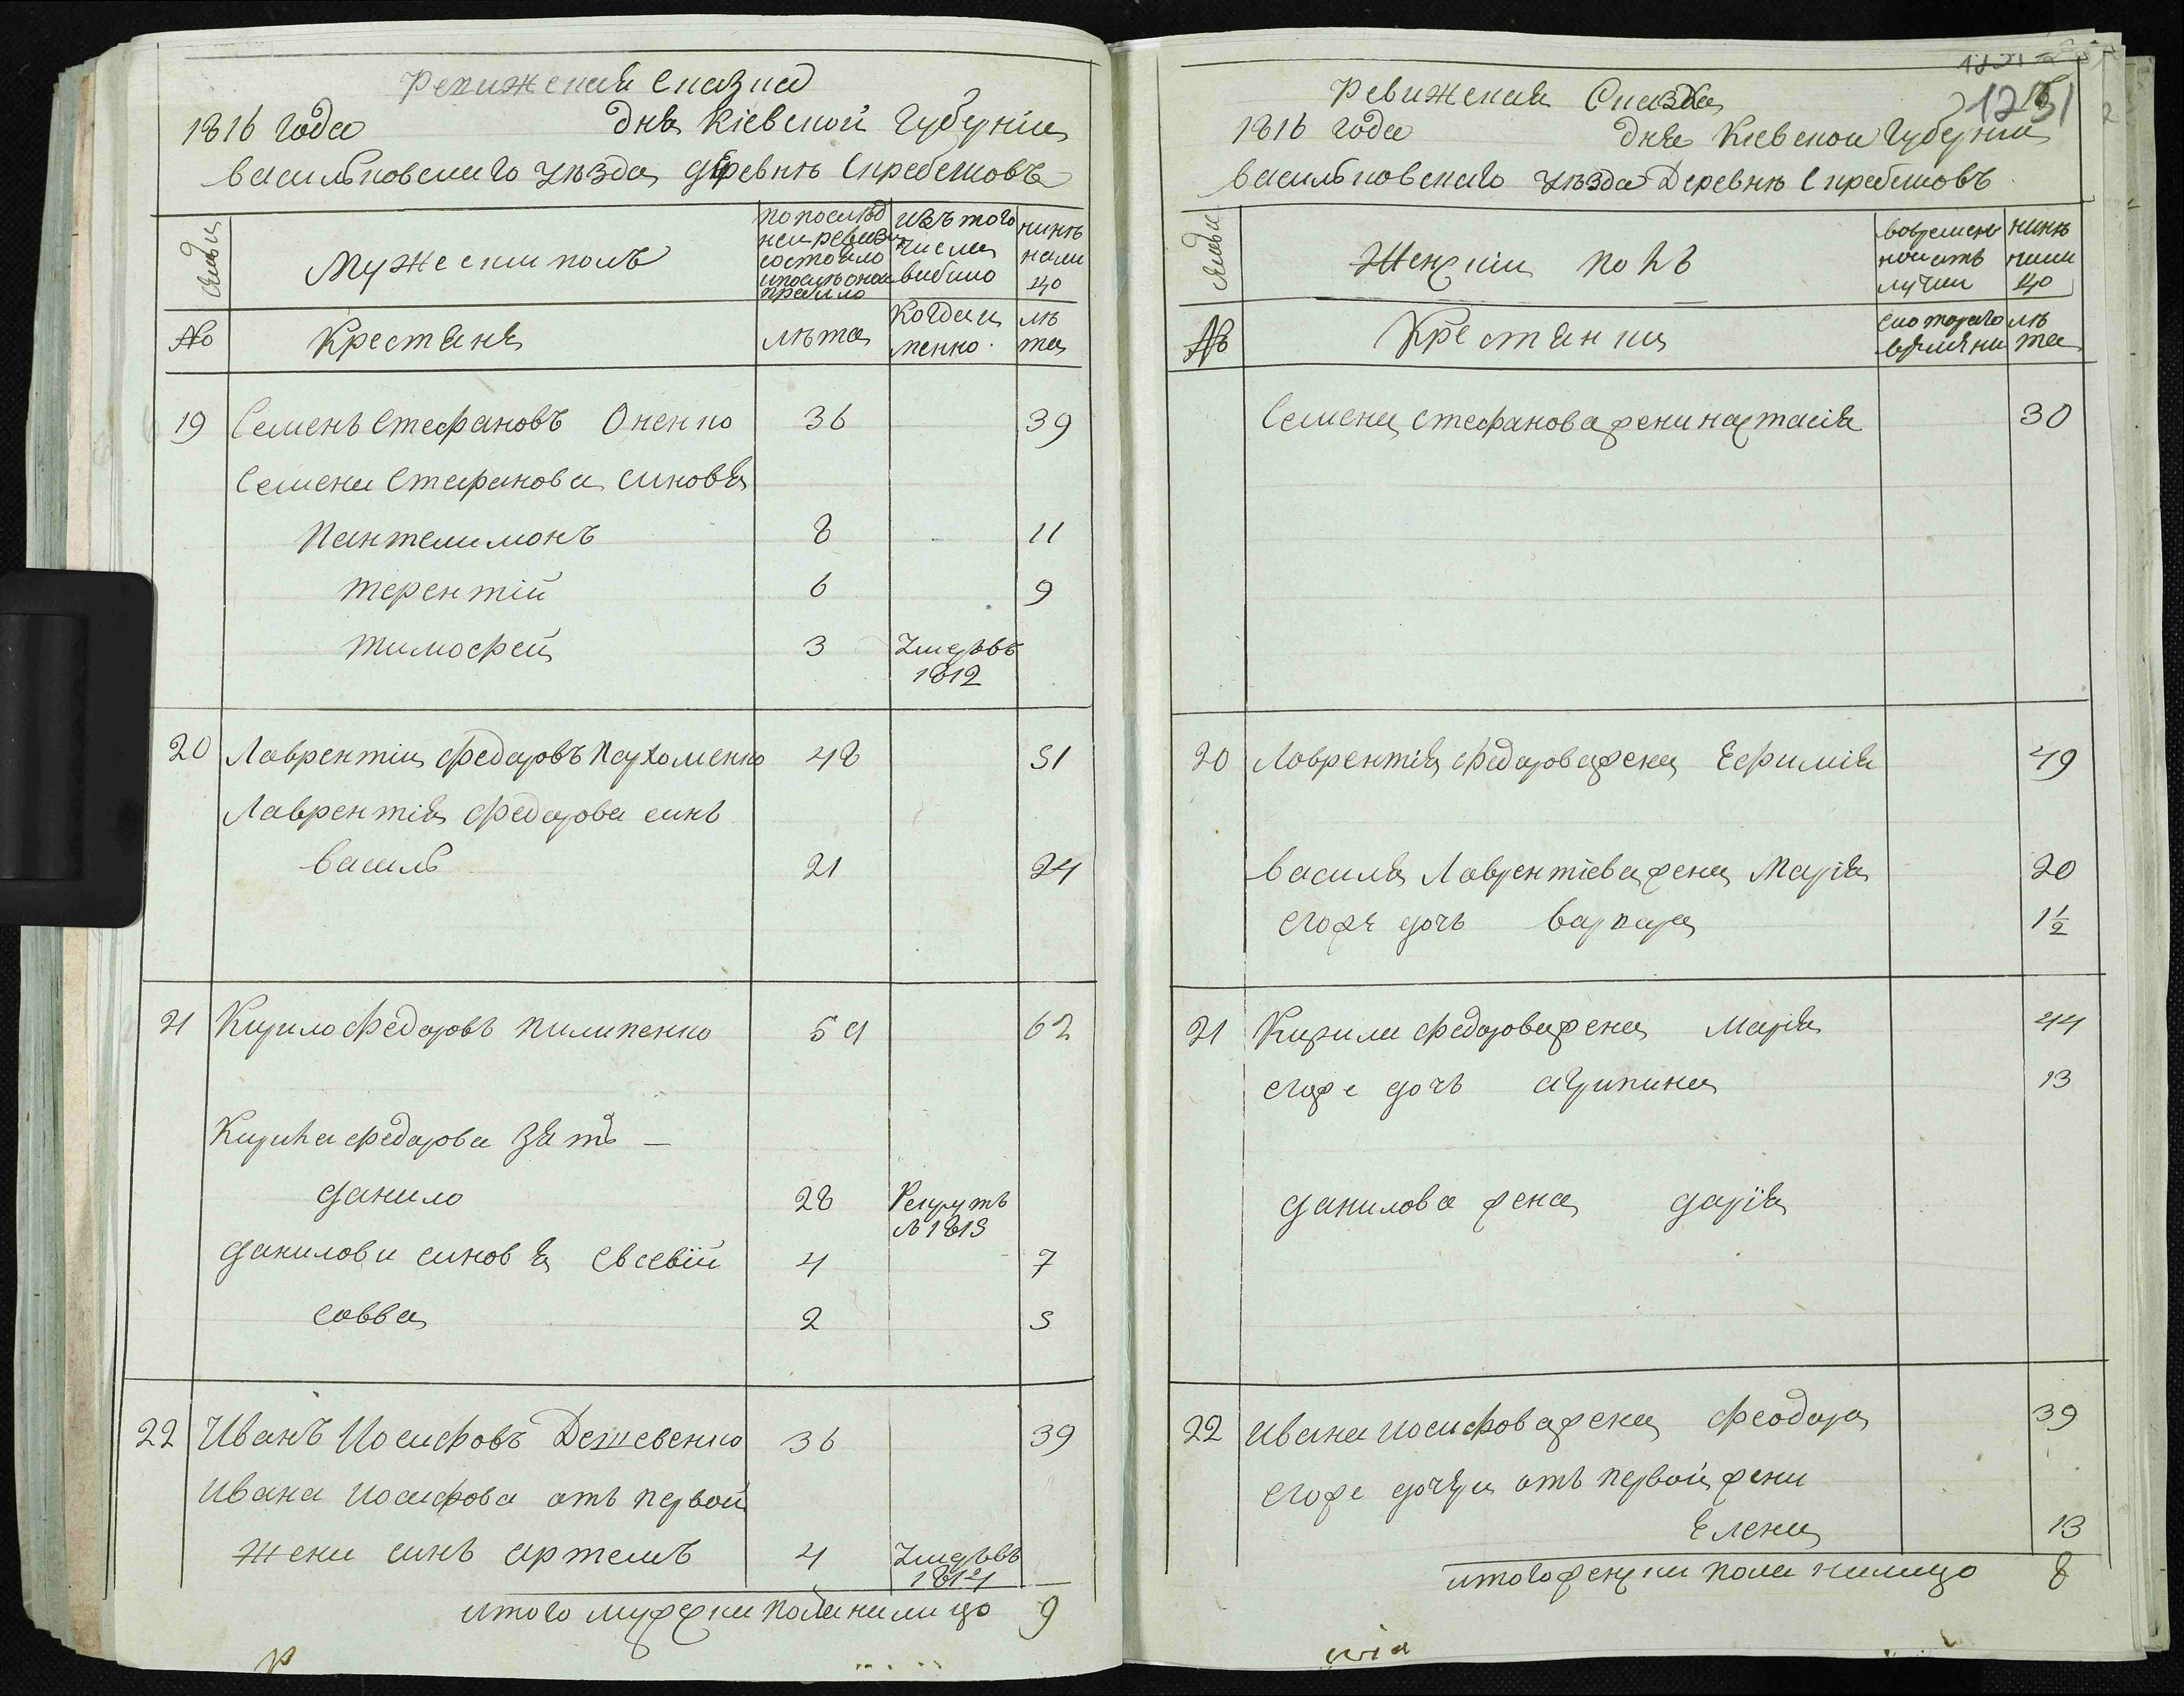 Ревижская Сказка
1816 года дня Кіевской Губерніи
васильковского уѣзда деревнѣ Скребешовъ
семьи
Мужескии полъ
по послѣд
неи ревизи
состояло
и послѣ оной
прибыло
изъ того
числа
вибило
нинѣ
нали
цо
№
Крестяня
лѣта
Когда и
менно
лѣ
та
19 Семенъ Стефановъ Оненко 36 39
Семена Стефанова синовя
Пантелимонъ 8 11
терентій 6 9
тимофей 3 Умеръ въ
1812
20 Лаврентіи Федоровъ Пархоменко 48 51
Лаврентія Федорова синъ
василь 21 24
21 Кирило Федоровъ пилипенко 59 62
Кирила Федорова зять —
данило 28 Рекрутъ
1813
данилови синовя Евсевій 4 7
савва 2 5
22 Иванъ Иосифовъ Дешевенко 36 39
Ивана Иосифова отъ первой
жени синъ артемъ 4 Умеръ въ
1814
итого мужески пола налицо 9
1231
Ревижская Сказка
1816 года дня Кіевской Губерніи
васильковскаго уѣзда Деревнѣ Скребешовъ
семьи
Женскіи полъ
во времен
ной отъ
лучки
нинѣ
нали
цо
№
Крестянки
с котораго
времяни
лѣ
та
Семена Стефанова жена настасія 30
20 Лаврентія Федорова жена Ефимія 49
василя Лаврентіева жена Марія 20
егоже дочъ варвара 1½
21 Кирили Федорова жена Марія 44
егоже дочъ агрипина 13
данилова жена дарія
22 ивана иосифова жена феодора 39
егоже дочери отъ первой жени
Елена 13
итого женски пола налицо 8